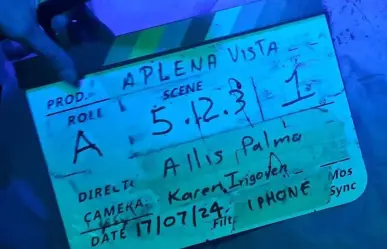 PROD. A PLENA VISTA
ROLL SCENE
A 5.12.3 1
DIRECT: Allis Palma
CAMERA: Karen Irigoyen
DATE 17/07/24 Filt. IPHONE
Mos
Sync